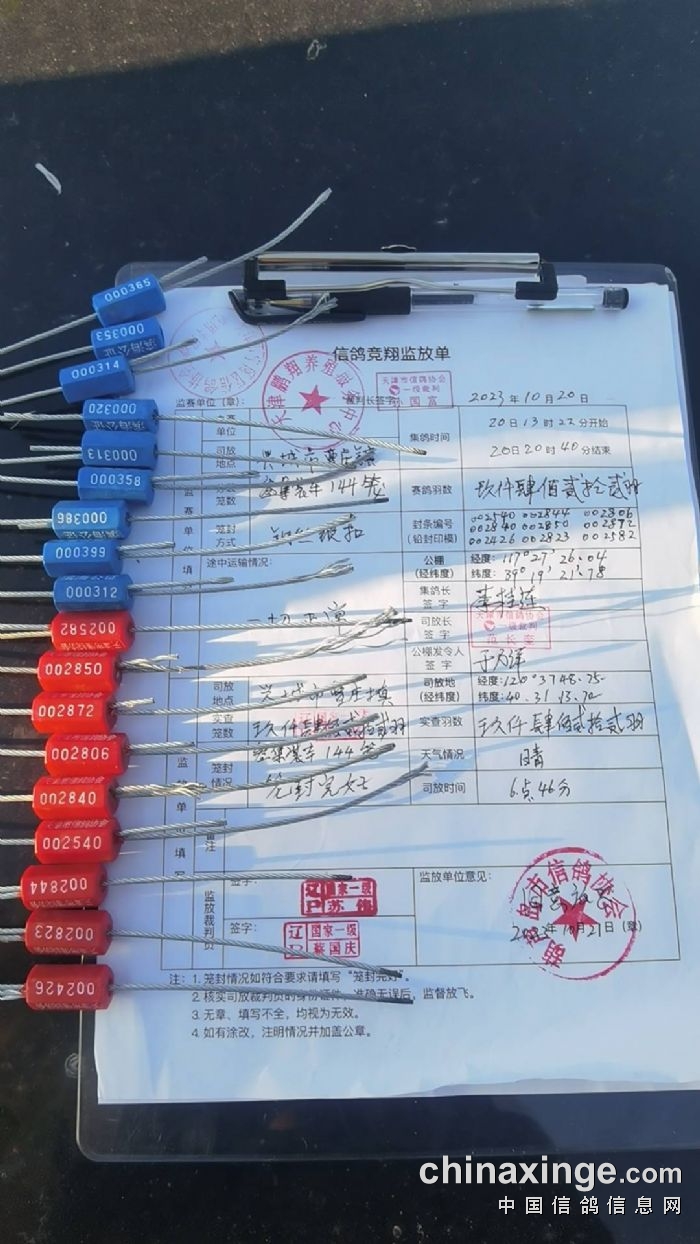 000365
000353
000314
000320
000313
000358
000386
000399
000312
002582
002850
002872
002806
002840
002540
002844
002823
002426
信鸽竞翔监放单
监赛单位(章): 裁判长签字: 2023年10月20日
天津市信鸽协会
一级裁判
国富
天津鹏翔养殖
单位 集鸽时间 20日13时22分开始
20日20时40分结束
司放地点
笼数 144笼 赛鸽羽数 玖仟肆佰贰拾贰羽
笼封方式 封条编号(铅封印模) 002540 002844 002806
002840 002850 002872
002426 002823 002582
途中运输情况: 公棚(经纬度) 经度: 117°27′26.04
纬度: 39°19′21.78
集鸽长签字
一切正常 司放长签字
天津市信鸽协会
一级裁判
公棚发令人签字
司放地点 司放地(经纬度) 经度: 120°37 48.75
纬度: 40.31.13.70
实查笼数 玖仟肆佰贰拾贰羽 144笼 实查羽数 玖仟肆佰贰拾贰羽
笼封情况 笼封完好 天气情况 晴
司放时间 6点46分
备注
监放裁判员 签字: 辽 国家一级 苏 监放单位意见:
签字: 辽 国家一级 蔡国庆 2023年10月21日(章)
葫芦岛市信鸽协会
注: 1. 笼封情况如符合要求请填写“笼封完好”。
2. 核实司放裁判员的身份证件, 准确无误后, 监督放飞。
3. 无章、填写不全, 均视为无效。
4. 如有涂改, 注明情况并加盖公章。
chinaxinge.com
中国信鸽信息网